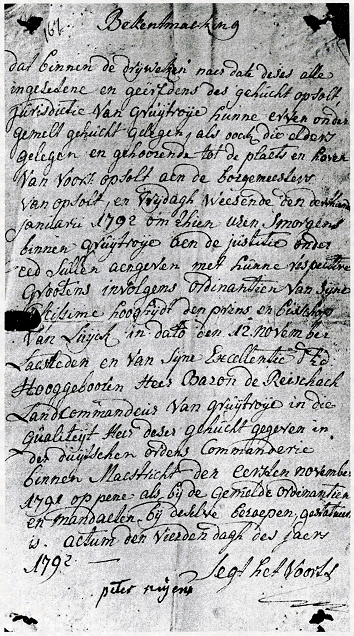 167
Bekentmaeking
dat binnen de drij weken naer date deses alle
ingesetene en geerfdens des gehucht opsolt
Jurisdictie Van Gruijtroije hunne erven onder
gemelt gehucht gelegen, als oock die elders
gelegen en gehoorende tot de plaets en hoven
Van Voors. opsolt aen de borgemeesters
van opsolt en Vrijdagh Weesende den
Januarii 1792 om thien uren Smorgens
binnen Gruijtroye aen de justitie onder
eed sullen aengeven met hunne respective
Grootens involgens ordinantien van Sijne
hooghijdt den prins en bisschop
Van Luijck in dato den 12 november
Laestleden en van Sijne Excellentie
Hooggebooren Heer Baron de Reischach
Landcommandeur Van Gruijtroije in die
qualiteijt Heer deses gehucht gegeven in
der duijtschen ordens Commanderie
binnen Maestricht den eersten november
1791 op pene als bij de gemelde ordinantien
en mandaeten, bij deselve beroepen, gestatueert
is. actum den vierden dagh des jaers
1792 —
Segt het Voorts
peter nijens